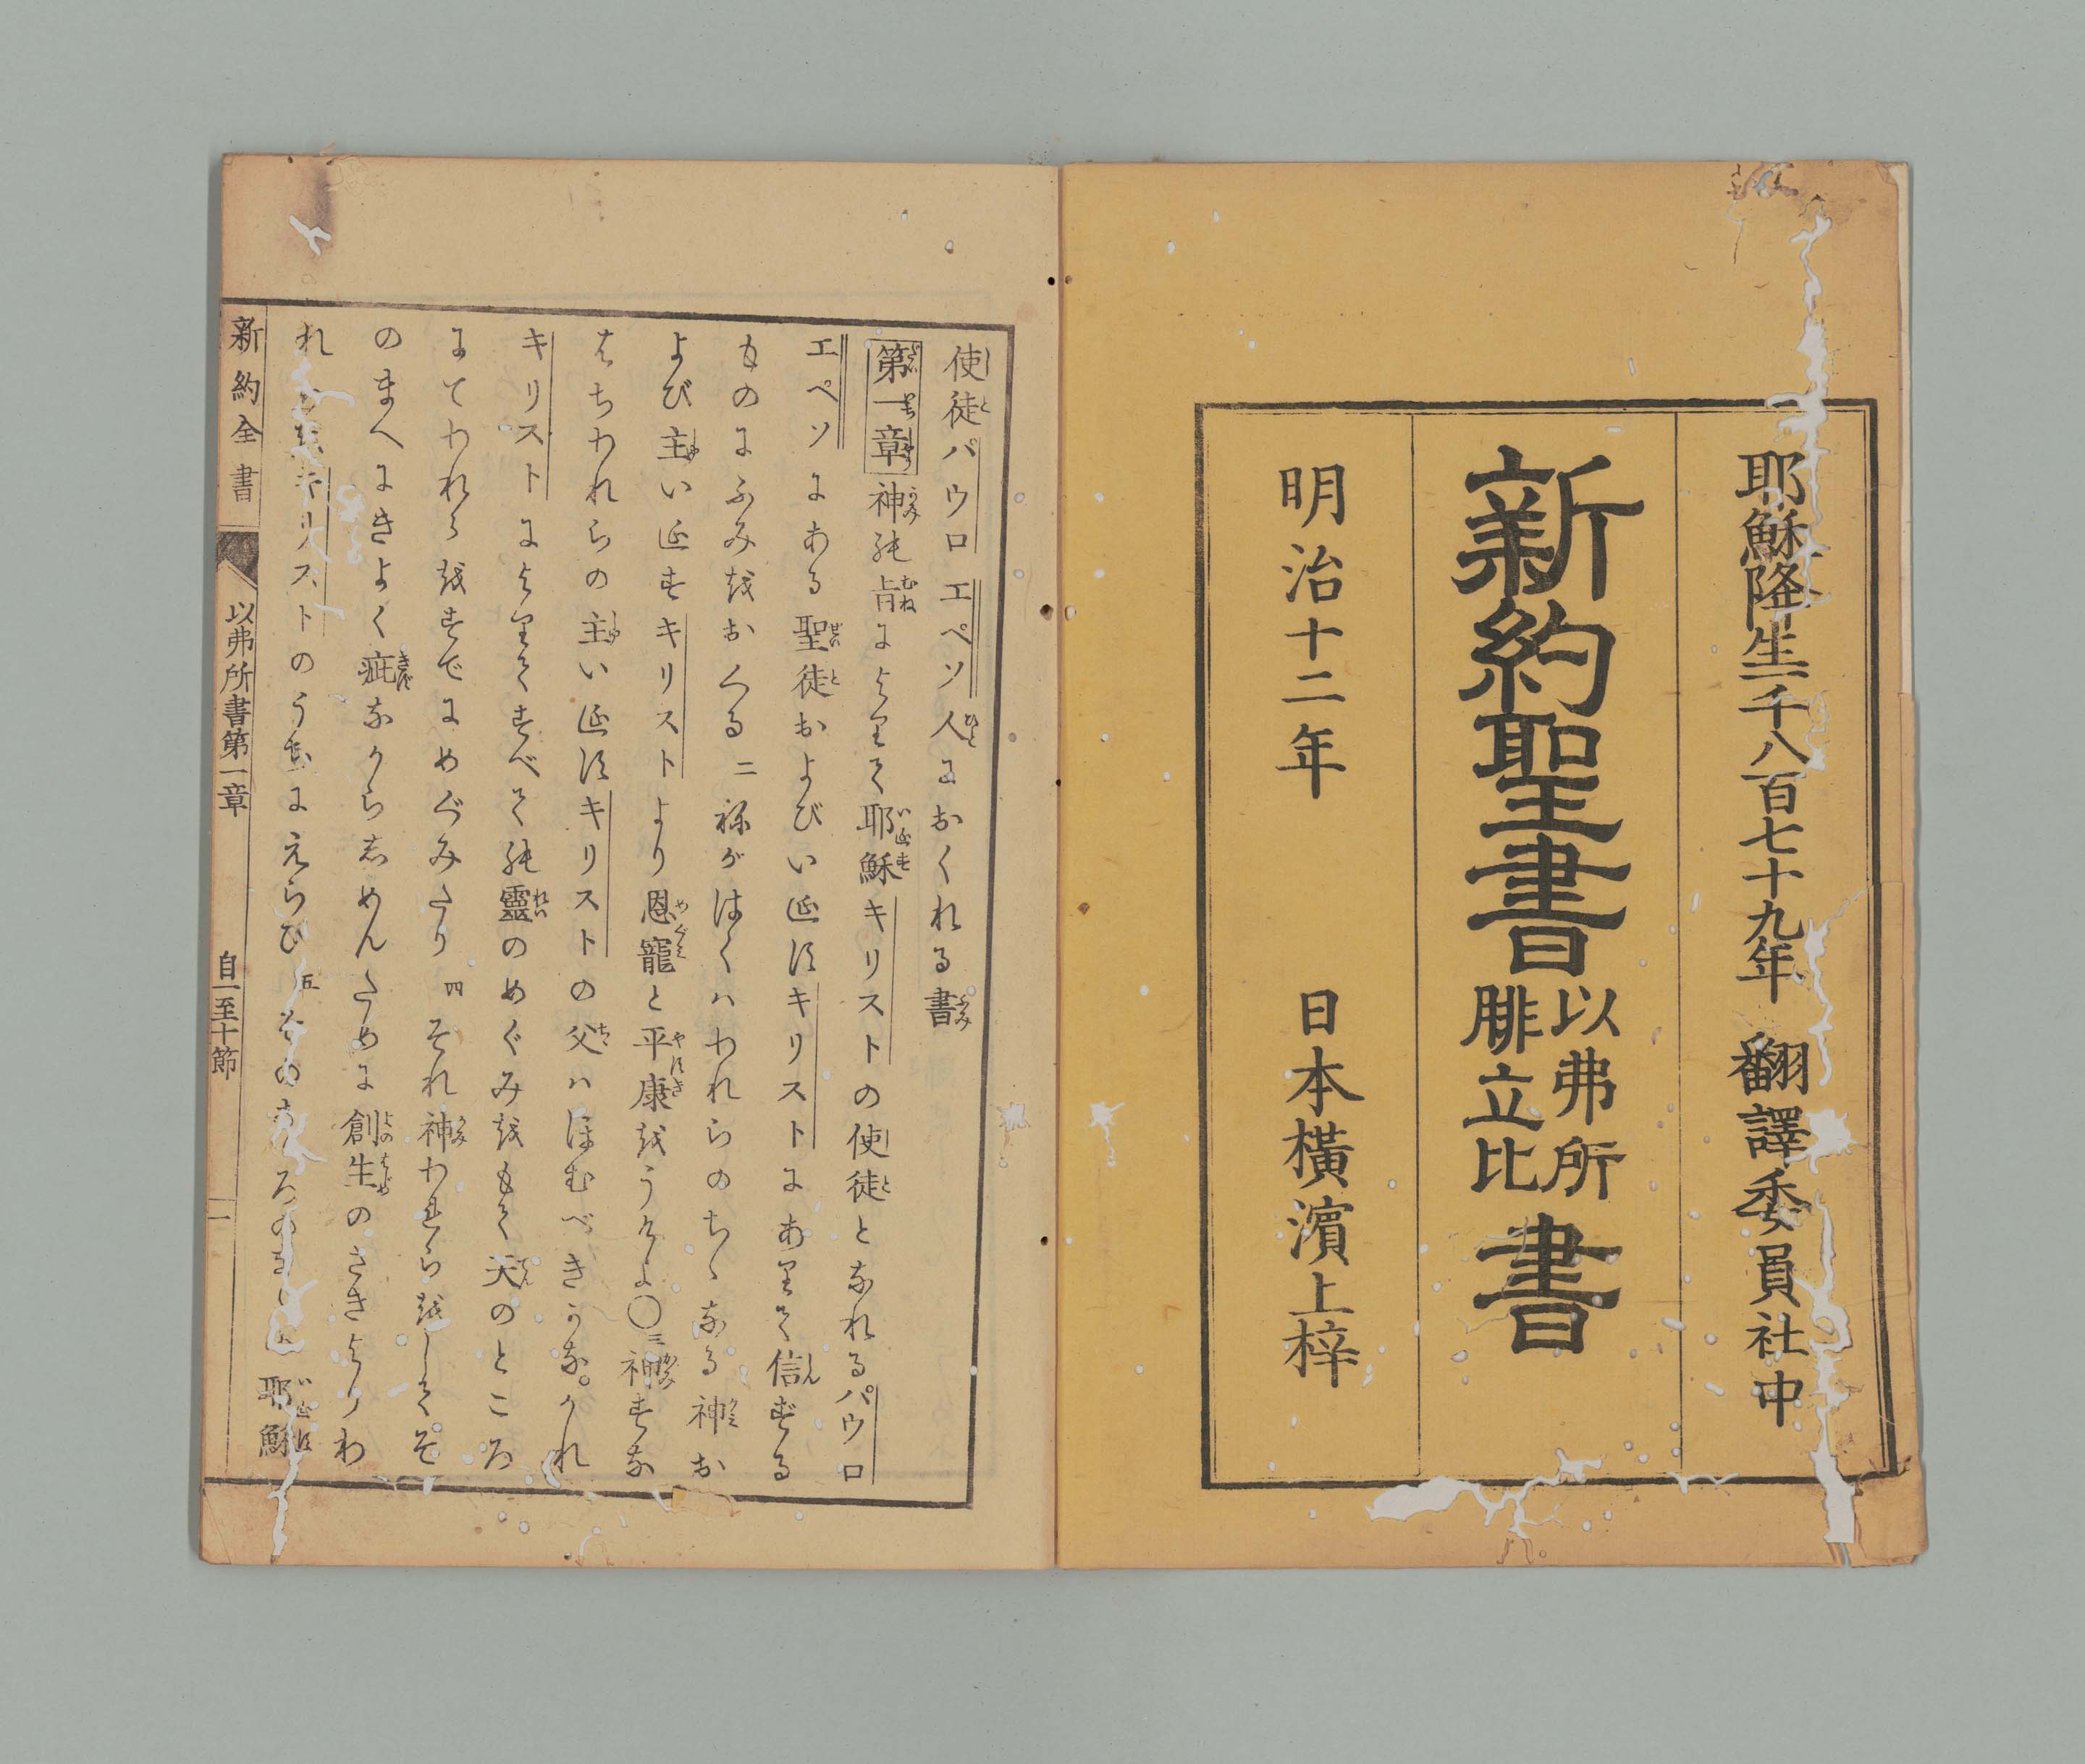 耶穌降生一千八百七十九年 翻譯委員社中
新約聖書 以弗所 腓立比 書
明治十二年 日本橫濱上梓
使徒パウロエペソ人におくれる書
第一章 神の旨によりて耶穌キリストの使徒となれるパウロ
エペソにある聖徒およびいエスキリストにありて信ずる
ものにふみをおくる 二 ねがはくハわれらのちゝなる神お
よび主いエスキリストより恩寵と平康をうけよ〇 三 神すな
はちわれらの主いエスキリストの父ハほむべきかな。かれ
キリストによりてすべての靈のめぐみをもて天のところ
にてわれらをすでにめぐみたり 四 それ神われらをしてそ
のまへにきよく疵なからしめんために創生のさきよりわ
れ キリストのうちにえらび 五 その 耶穌
新約全書 以弗所書第一章 自一至十節 一